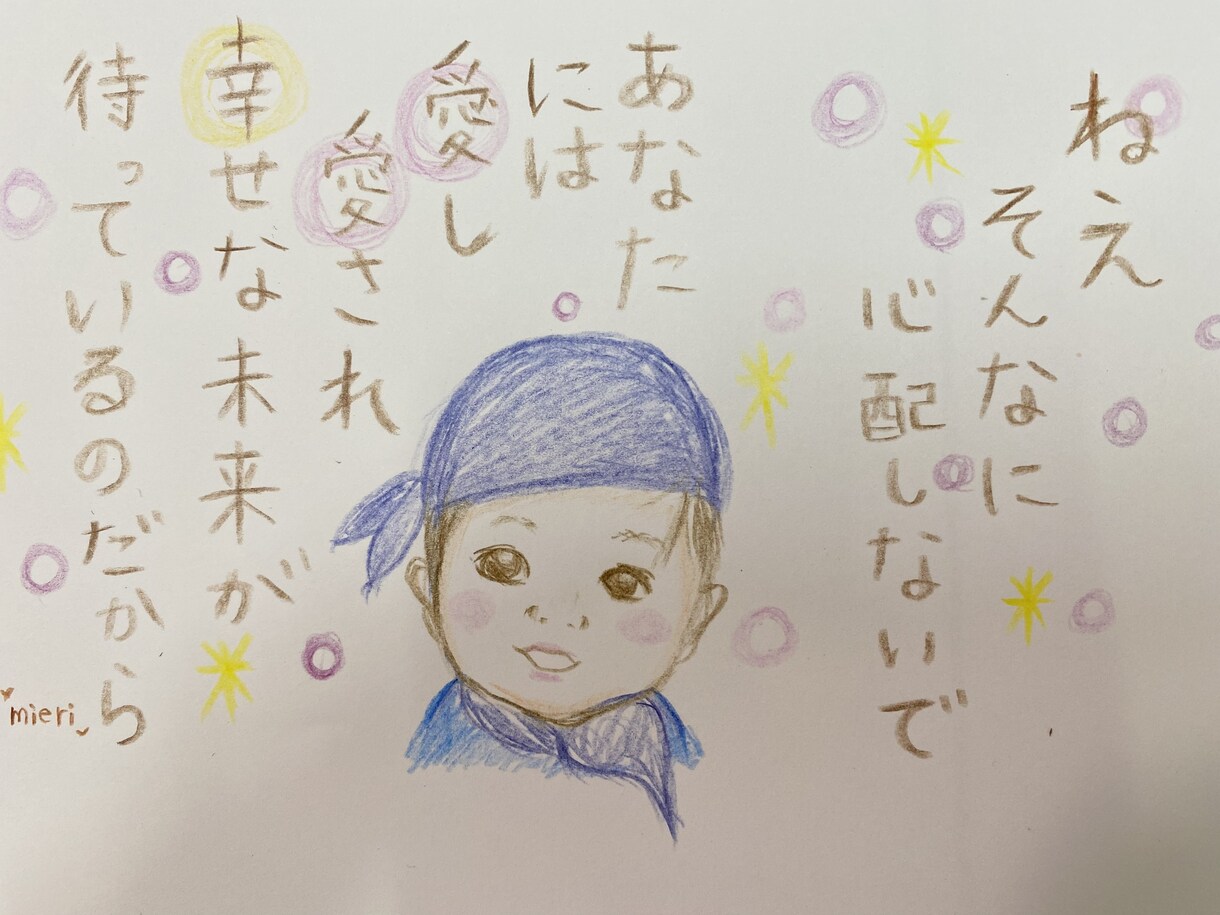 ねえ
そんなに
心配しないで
あなた
には
愛し
愛され
幸せな未来が
待っているのだから
mieri